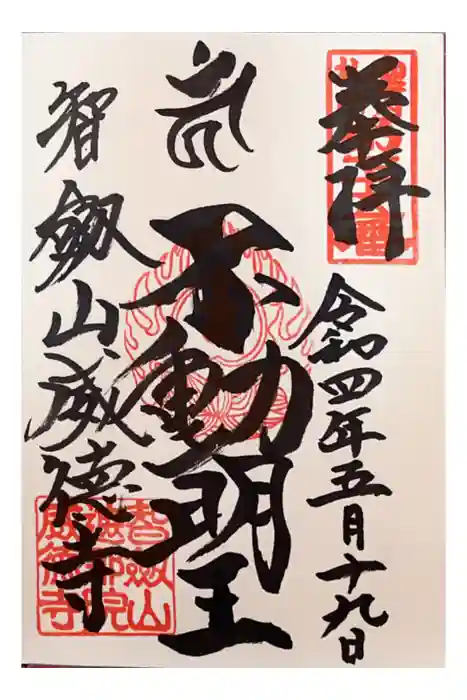 奉拝
令和四年五月十九日
不動明王
智劔山威徳寺
智劔山
遍照院
威德寺